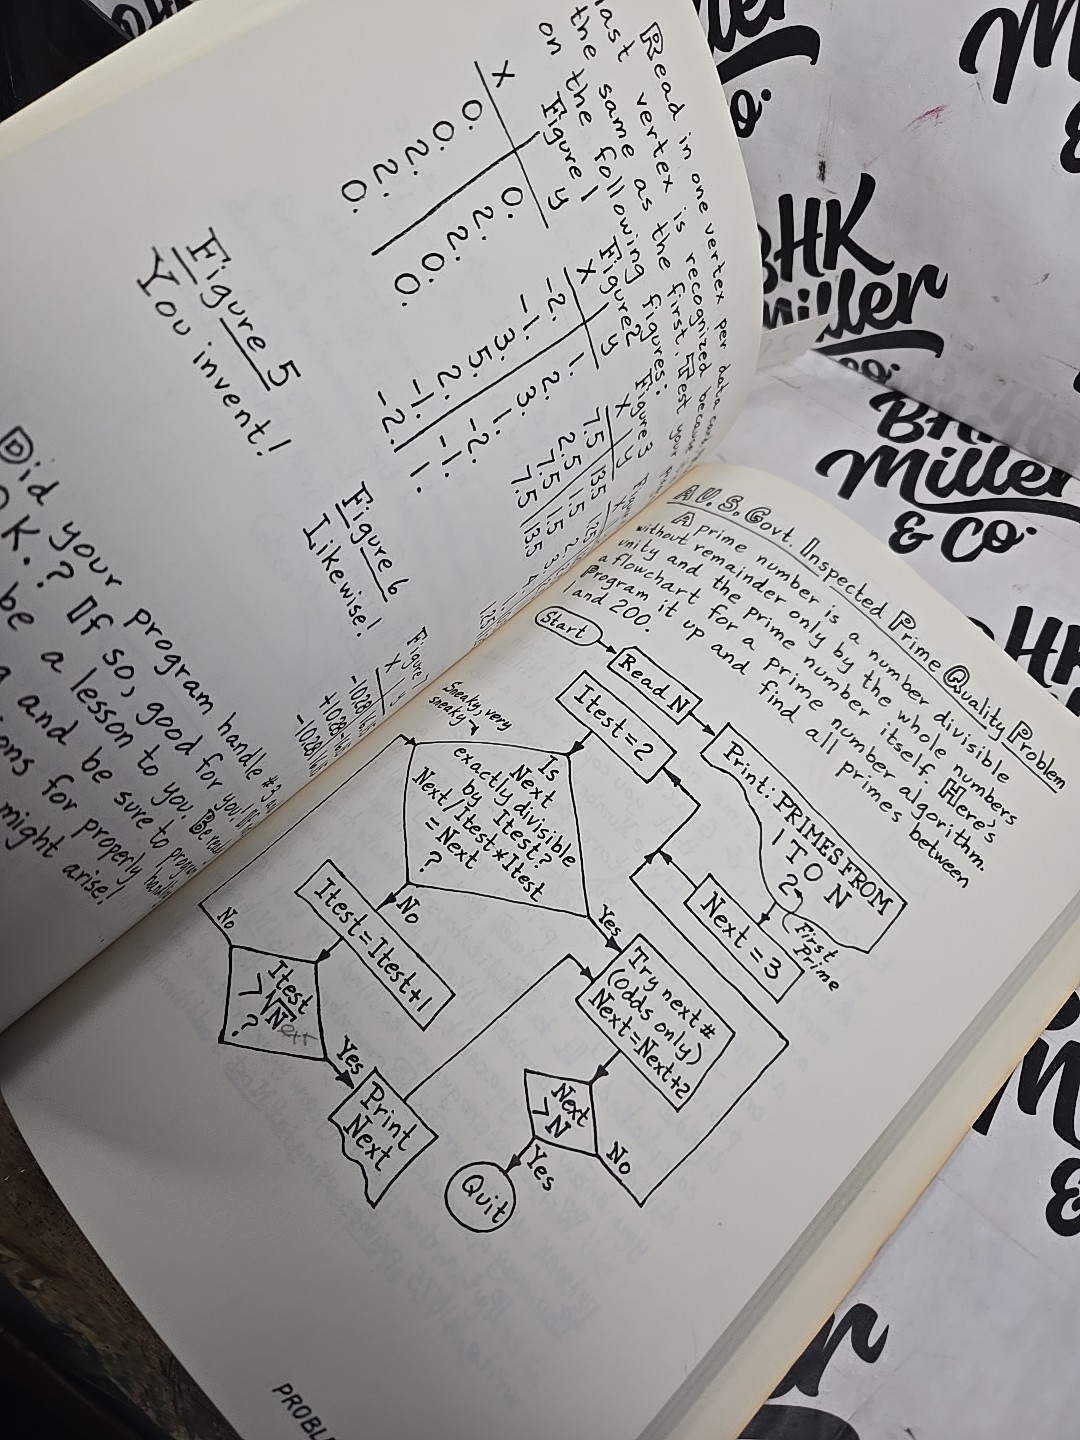 Read in one vertex per data card
last vertex is recognized because
the same as the first. Test your
on the following figures:
Figure 1
x y
0. 0.
0. 2.
2. 2.
2. 0.
0. 0.
Figure 2
x y
-2. 1.
-1. 2.
3. 3.
5. 1.
2. -2.
-1. -1.
-2. 1.
Figure 3
x y
7.5 13.5
2.5 1.5
7.5 1.5
7.5 13.5
Figure 5
You invent!
Figure 6
Likewise!
Figure 7
x y
Did your program handle #3
O.K.? If so, good for you. If
be a lesson to you.
and be sure to
for properly
might arise!
A U.S. Govt. Inspected Prime Quality Problem
A prime number is a number divisible
without remainder only by the whole numbers
unity and the prime number itself. Here's
a flowchart for a prime number algorithm.
Program it up and find all primes between
1 and 200.
Start
Read N
Print: PRIMES FROM
1 TO N
2
First
Prime
Next = 3
Itest = 2
Sneaky, very
sneaky
Is
Next
exactly divisible
by Itest?
Next/Itest*Itest
= Next
?
No
Yes
Itest = Itest+1
Try next #
(odds only)
Next = Next+2
No
Itest
> √Next
?
Yes
Print
Next
Next
> N
No
Yes
Quit
PROBL
BHK
Miller
& Co.
BHK
Miller
& Co.